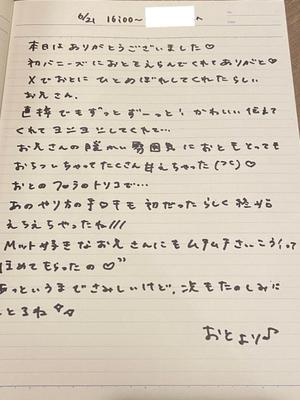 6/21 16:00〜 へ
本日はありがとうございました♡
初バニーズにおとえらんでくれてありがと♡
Xでおとに ひとめぼれしてくれたらしい
お兄さん。
直接でもずっとずーっと! かわいい伝えて
くれてヨシヨシしてくれて…
お兄さんの暖かい雰囲気におともとっても
おちついちゃってたくさん甘えちゃった
おとのフロラのトリコで…
あのやり方の手口手も初だったらしく 終始
えちえちゃったね///
Mット好きなお兄さんにもムチムチさいこうって
ほめてもらったの♡"
あっというまでさみしいけど、次もたのしみに
とるね
おとより♪